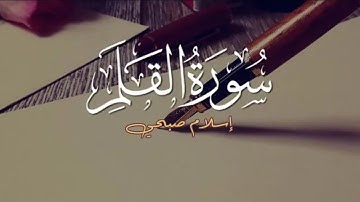 سُورَةُ القَلَمِ
إسلام صبحي